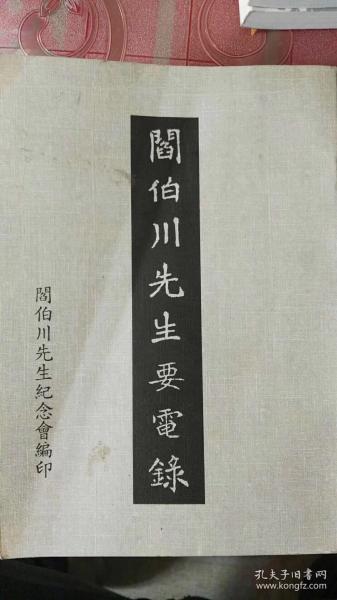 閻伯川先生要電錄
閻伯川先生紀念會編印
孔夫子旧书网
www.kongfz.com